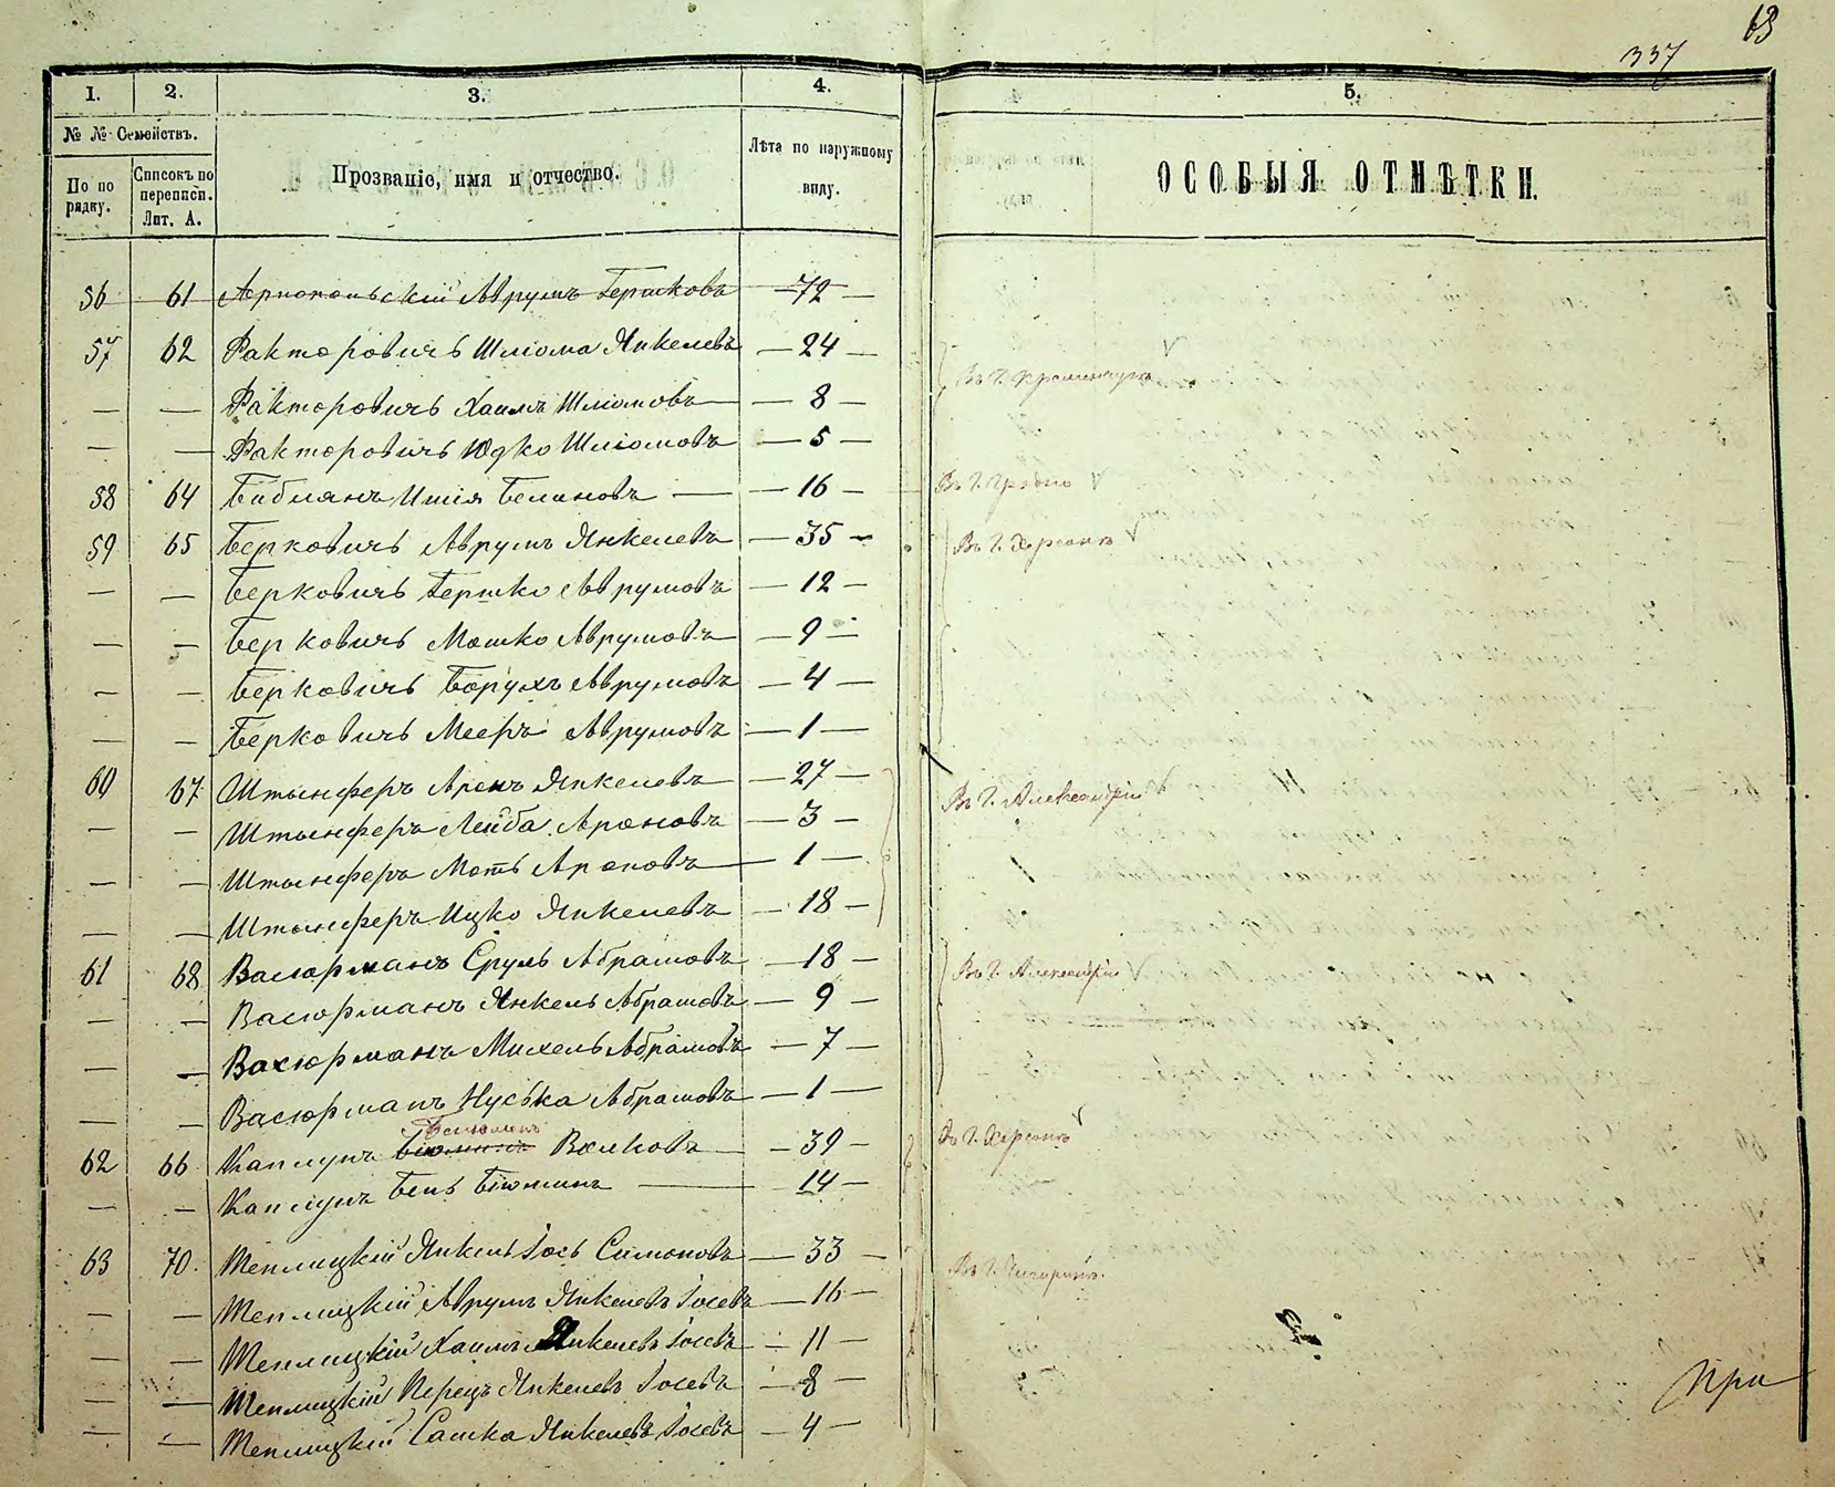 63
337
1. 2. 3. 4. 5.
№ № Семействъ.
По по рядку.
Списокъ по переписи. Лит. А.
Прозваніе, имя и отчество.
Лѣта по наружному виду.
ОСОБЫЯ ОТМѢТКИ.
56 61 Аврумъ Гершковъ — 72 —
57 62 Факторовичъ Шлiома Янкелевъ — 24 —
Въ г. Кременчугѣ
— — Факторовичъ Хаимъ Шлiомовъ — 8 —
— — Факторовичъ Юдко Шлiомовъ — 5 —
58 64 Бибманъ Ишія — 16 — Въ г. Гродно
59 65 Берковичъ Аврумъ Янкелевъ — 35 — Въ г. Херсонѣ
— — Берковичъ Гершко Аврумовъ — 12 —
— — Берковичъ Мошко Аврумовъ — 9 —
— — Берковичъ Борухъ Аврумовъ — 4 —
— — Берковичъ Мееръ Аврумовъ — 1 —
60 67 Штынферъ Аронъ Янкелевъ — 27 — Въ г. Александріи
— — Штынферъ Лейба Ароновъ — 3 —
— — Штынферъ Моть Ароновъ — 1 —
— — Штынферъ Ицко Янкелевъ — 18 —
61 68 Васюрманъ Сруль Абрамовъ — 18 — Въ г. Александріи
— — Васюрманъ Янкель Абрамовъ — 9 —
— — Васюрманъ Михель Абрамовъ — 7 —
— — Васюрманъ Нуська Абрамовъ — 1 —
62 66 Каплунъ Волковъ — 39 — Въ г. Херсонѣ
— — Каплунъ Бень — 14 —
63 70. Теплицкій Янкель Іось Симоновъ — 33 — Въ г. Чигиринѣ.
— — Теплицкій Аврумъ Янкелевъ Іосевъ — 16 —
— — Теплицкій Хаимъ Янкелевъ Іосевъ — 11 —
— — Теплицкій Перецъ Янкелевъ Іосевъ — 8 —
— — Теплицкій Сашка Янкелевъ Іосевъ — 4 —
При